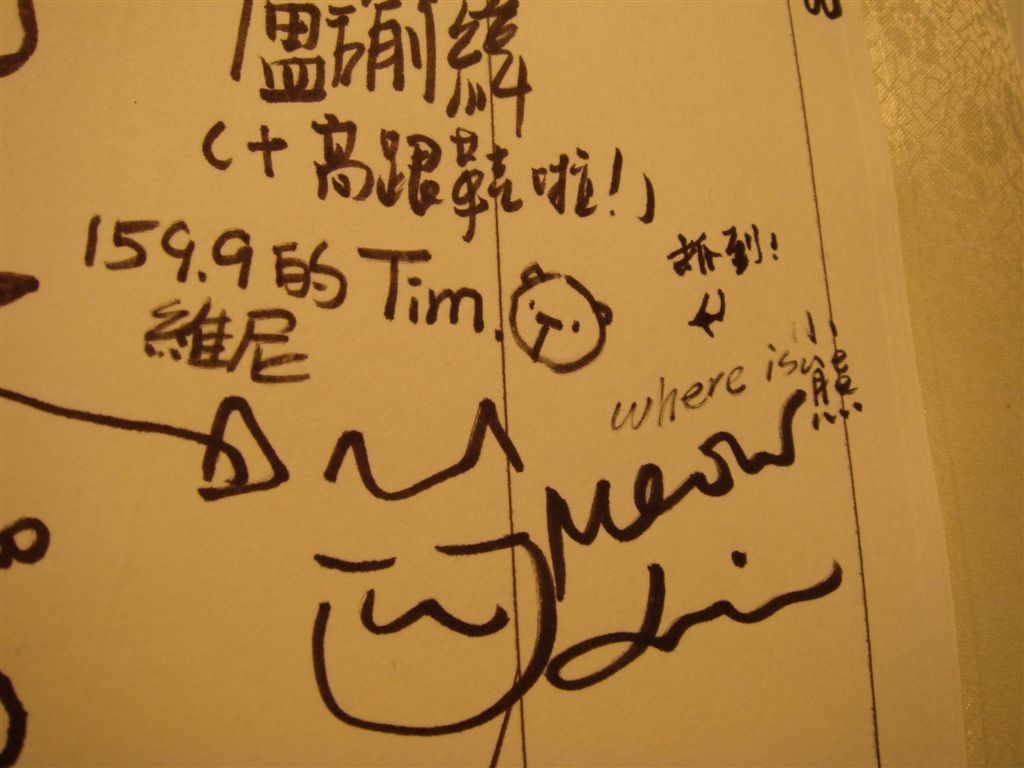 (+高跟鞋啦!)
159.9的Tim.
維尼
抓到!
where is小熊
Meow
Lin